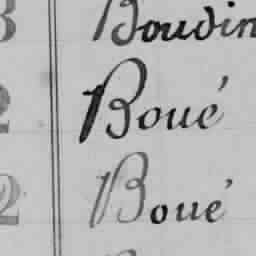 3 Boudin
2 Boué
2 Boué